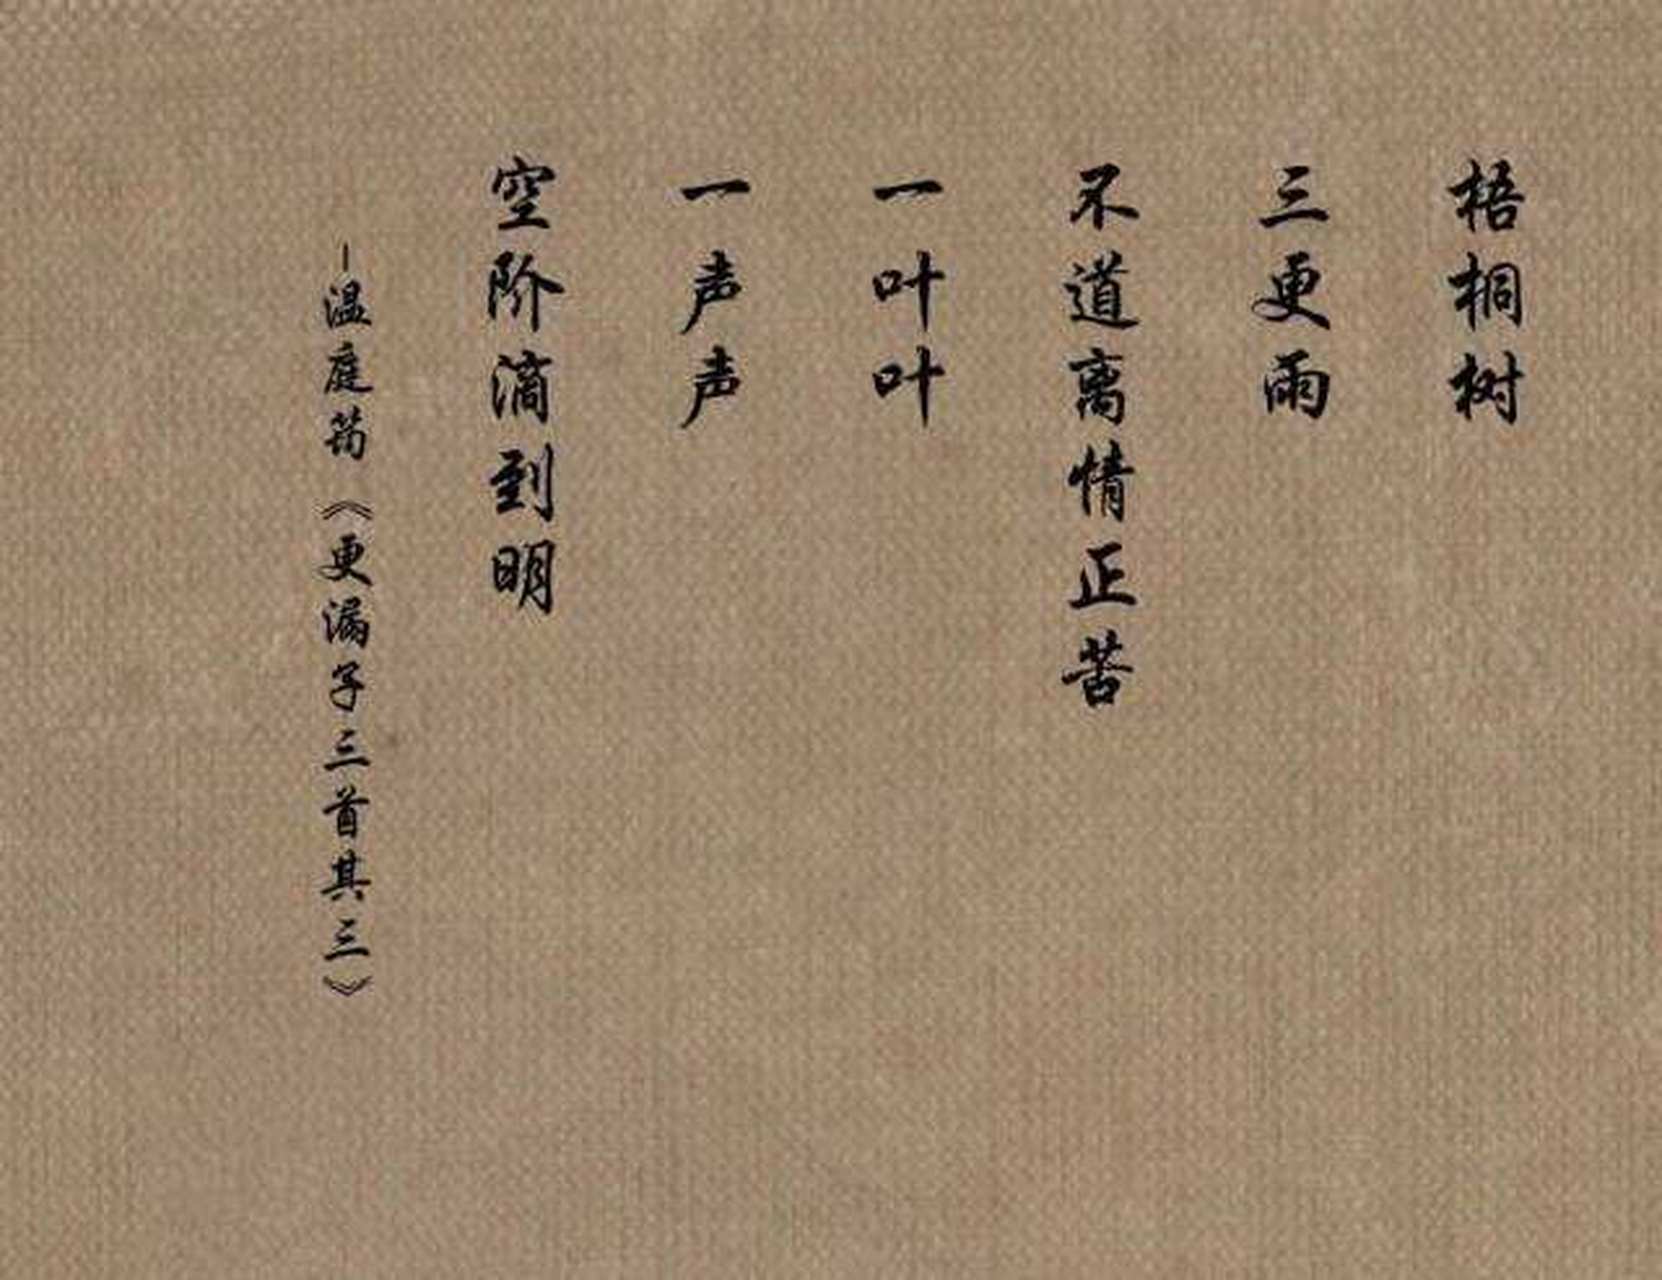 梧桐树
三更雨
不道离情正苦
一叶叶
一声声
空阶滴到明
–温庭筠《更漏子三首其三》